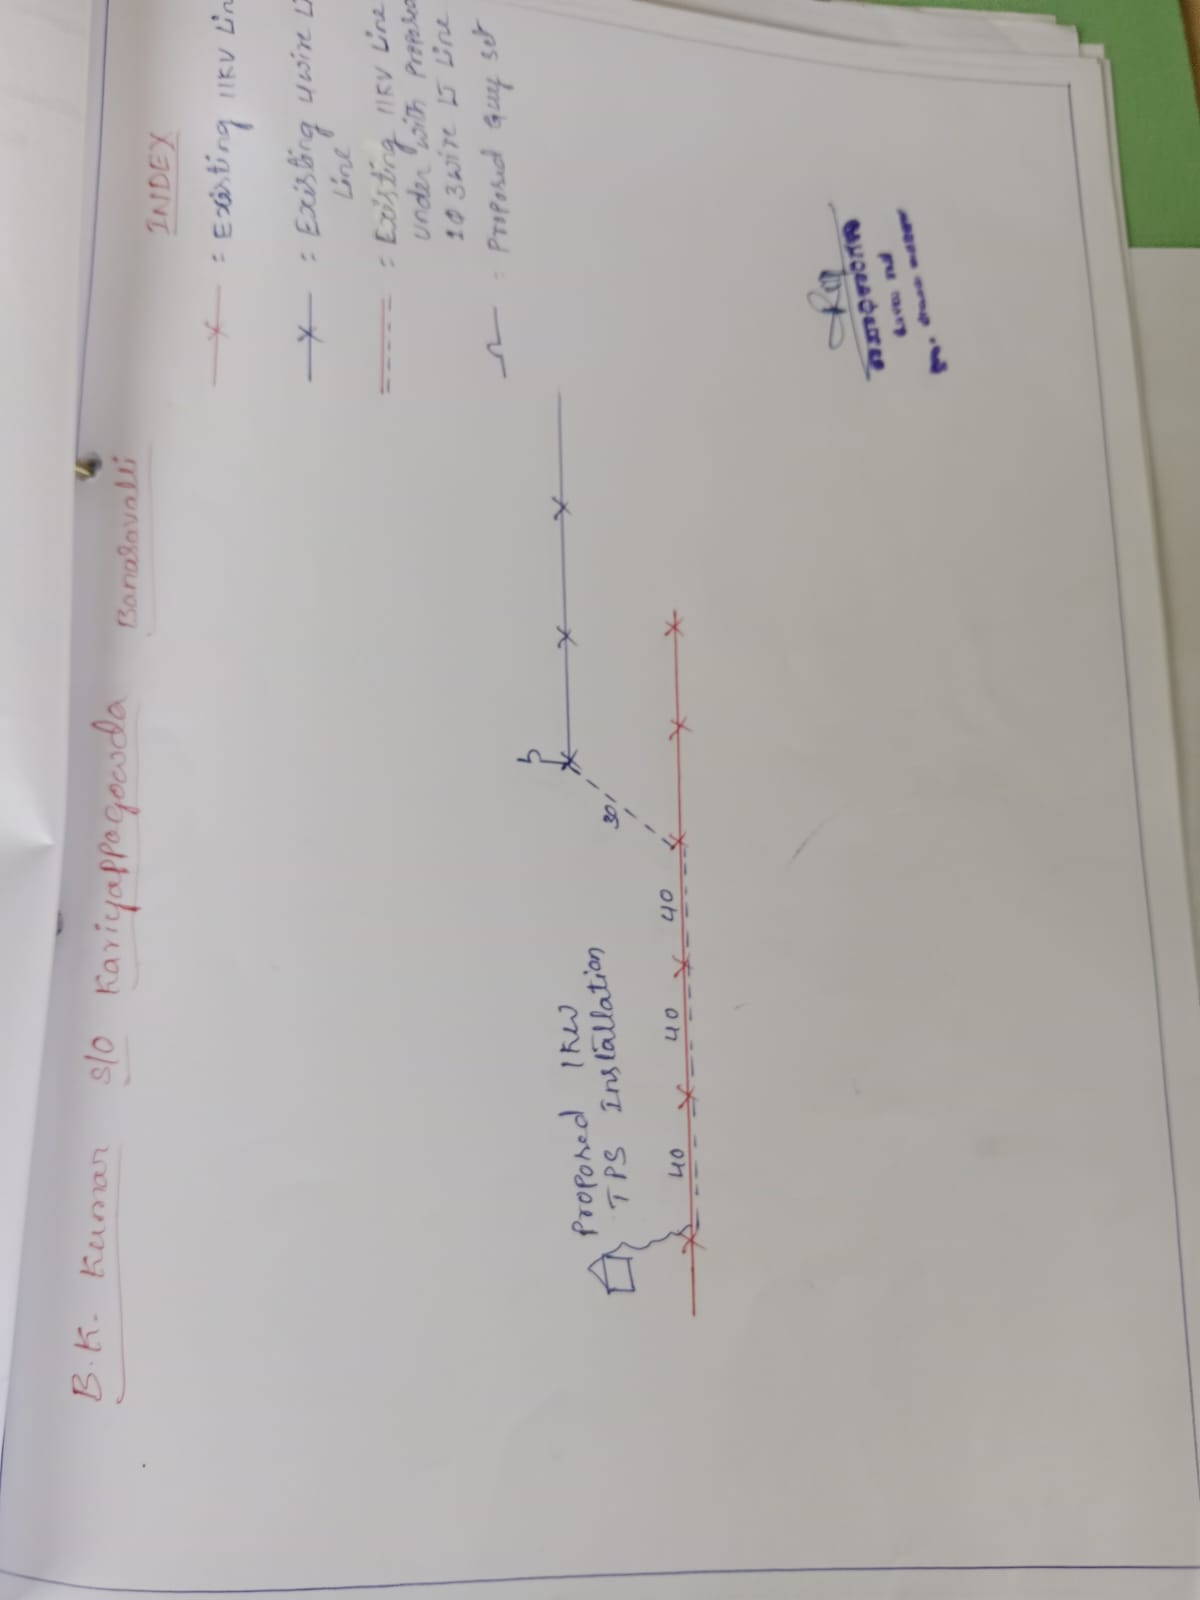 B.K. Kumar S/O Kariyappagowda Banasavalli
INDEX
: Existing 11KV Lin
: Existing 4wire Li
Line
: Existing 11KV Line
under with Proposed
1Ø 3wire LT Line
: Proposed Guy set
30
Proposed 1KW
TPS Installation
40 40 40